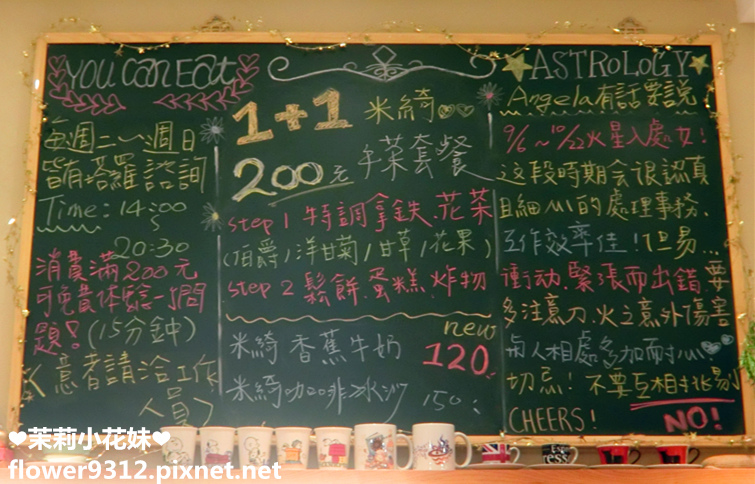 YOU Can Eat
每週二~週日
皆有塔羅諮詢
Time: 14:00
20:30
消費滿200元
可免費体驗一個問
題!(15分鐘)
意者請洽工作
人員
1+1 米綺
200元午茶套餐
step 1 特調拿鉄、花茶
(伯爵/洋甘菊/甘草/花果)
step 2 鬆餅、蛋糕、炸物
new
米綺 香蕉牛奶 120
米綺咖啡冰沙 150
ASTROLOGY
Angela有話要說
9/6~10/22火星入處女!
这段時期会很認真
且細心的處理事務、
工作效率佳!但易...
衝动、緊張而出錯 要
多注意刀、火之意外傷害
与人相處多加耐心
切忌!不要互相挑剔
CHEERS! NO!
❤茉莉小花妹❤
flower9312.pixnet.net